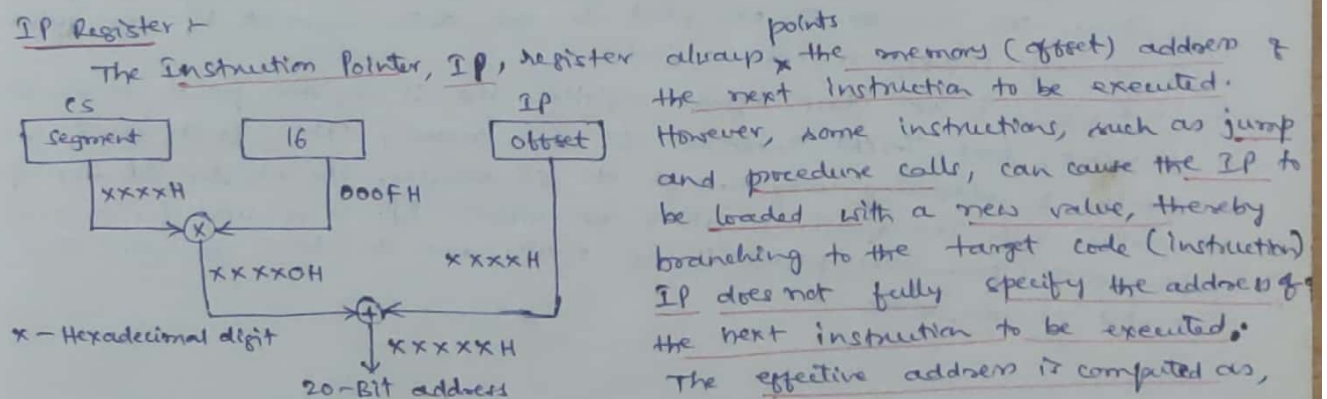 IP Register :-
The Instruction Pointer, IP, register always points the memory (offset) address of
the next instruction to be executed.
However, some instructions, such as jump
and procedure calls, can cause the IP to
be loaded with a new value, thereby
branching to the target code (instruction)
IP does not fully specify the address of
the next instruction to be executed.
The effective address is computed as,
CS
IP
segment
16
offset
xxxxH
000FH
x
xxxx0H
xxxxH
+
x - Hexadecimal digit
xxxxxH
20-Bit address